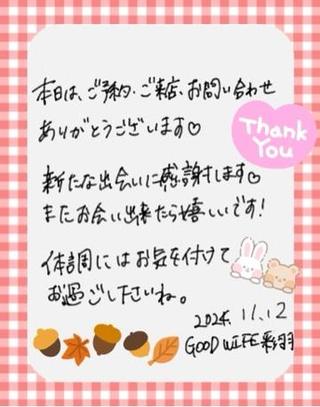 本日は、ご予約・ご来店、お問い合わせ
ありがとうございます♡
Thank
You
新たな出会いに感謝します♡
またお会い出来たら嬉しいです!
体調にはお気を付けて
お過ごしくださいね。
2024. 11. 12
GOOD WIFE 彩羽